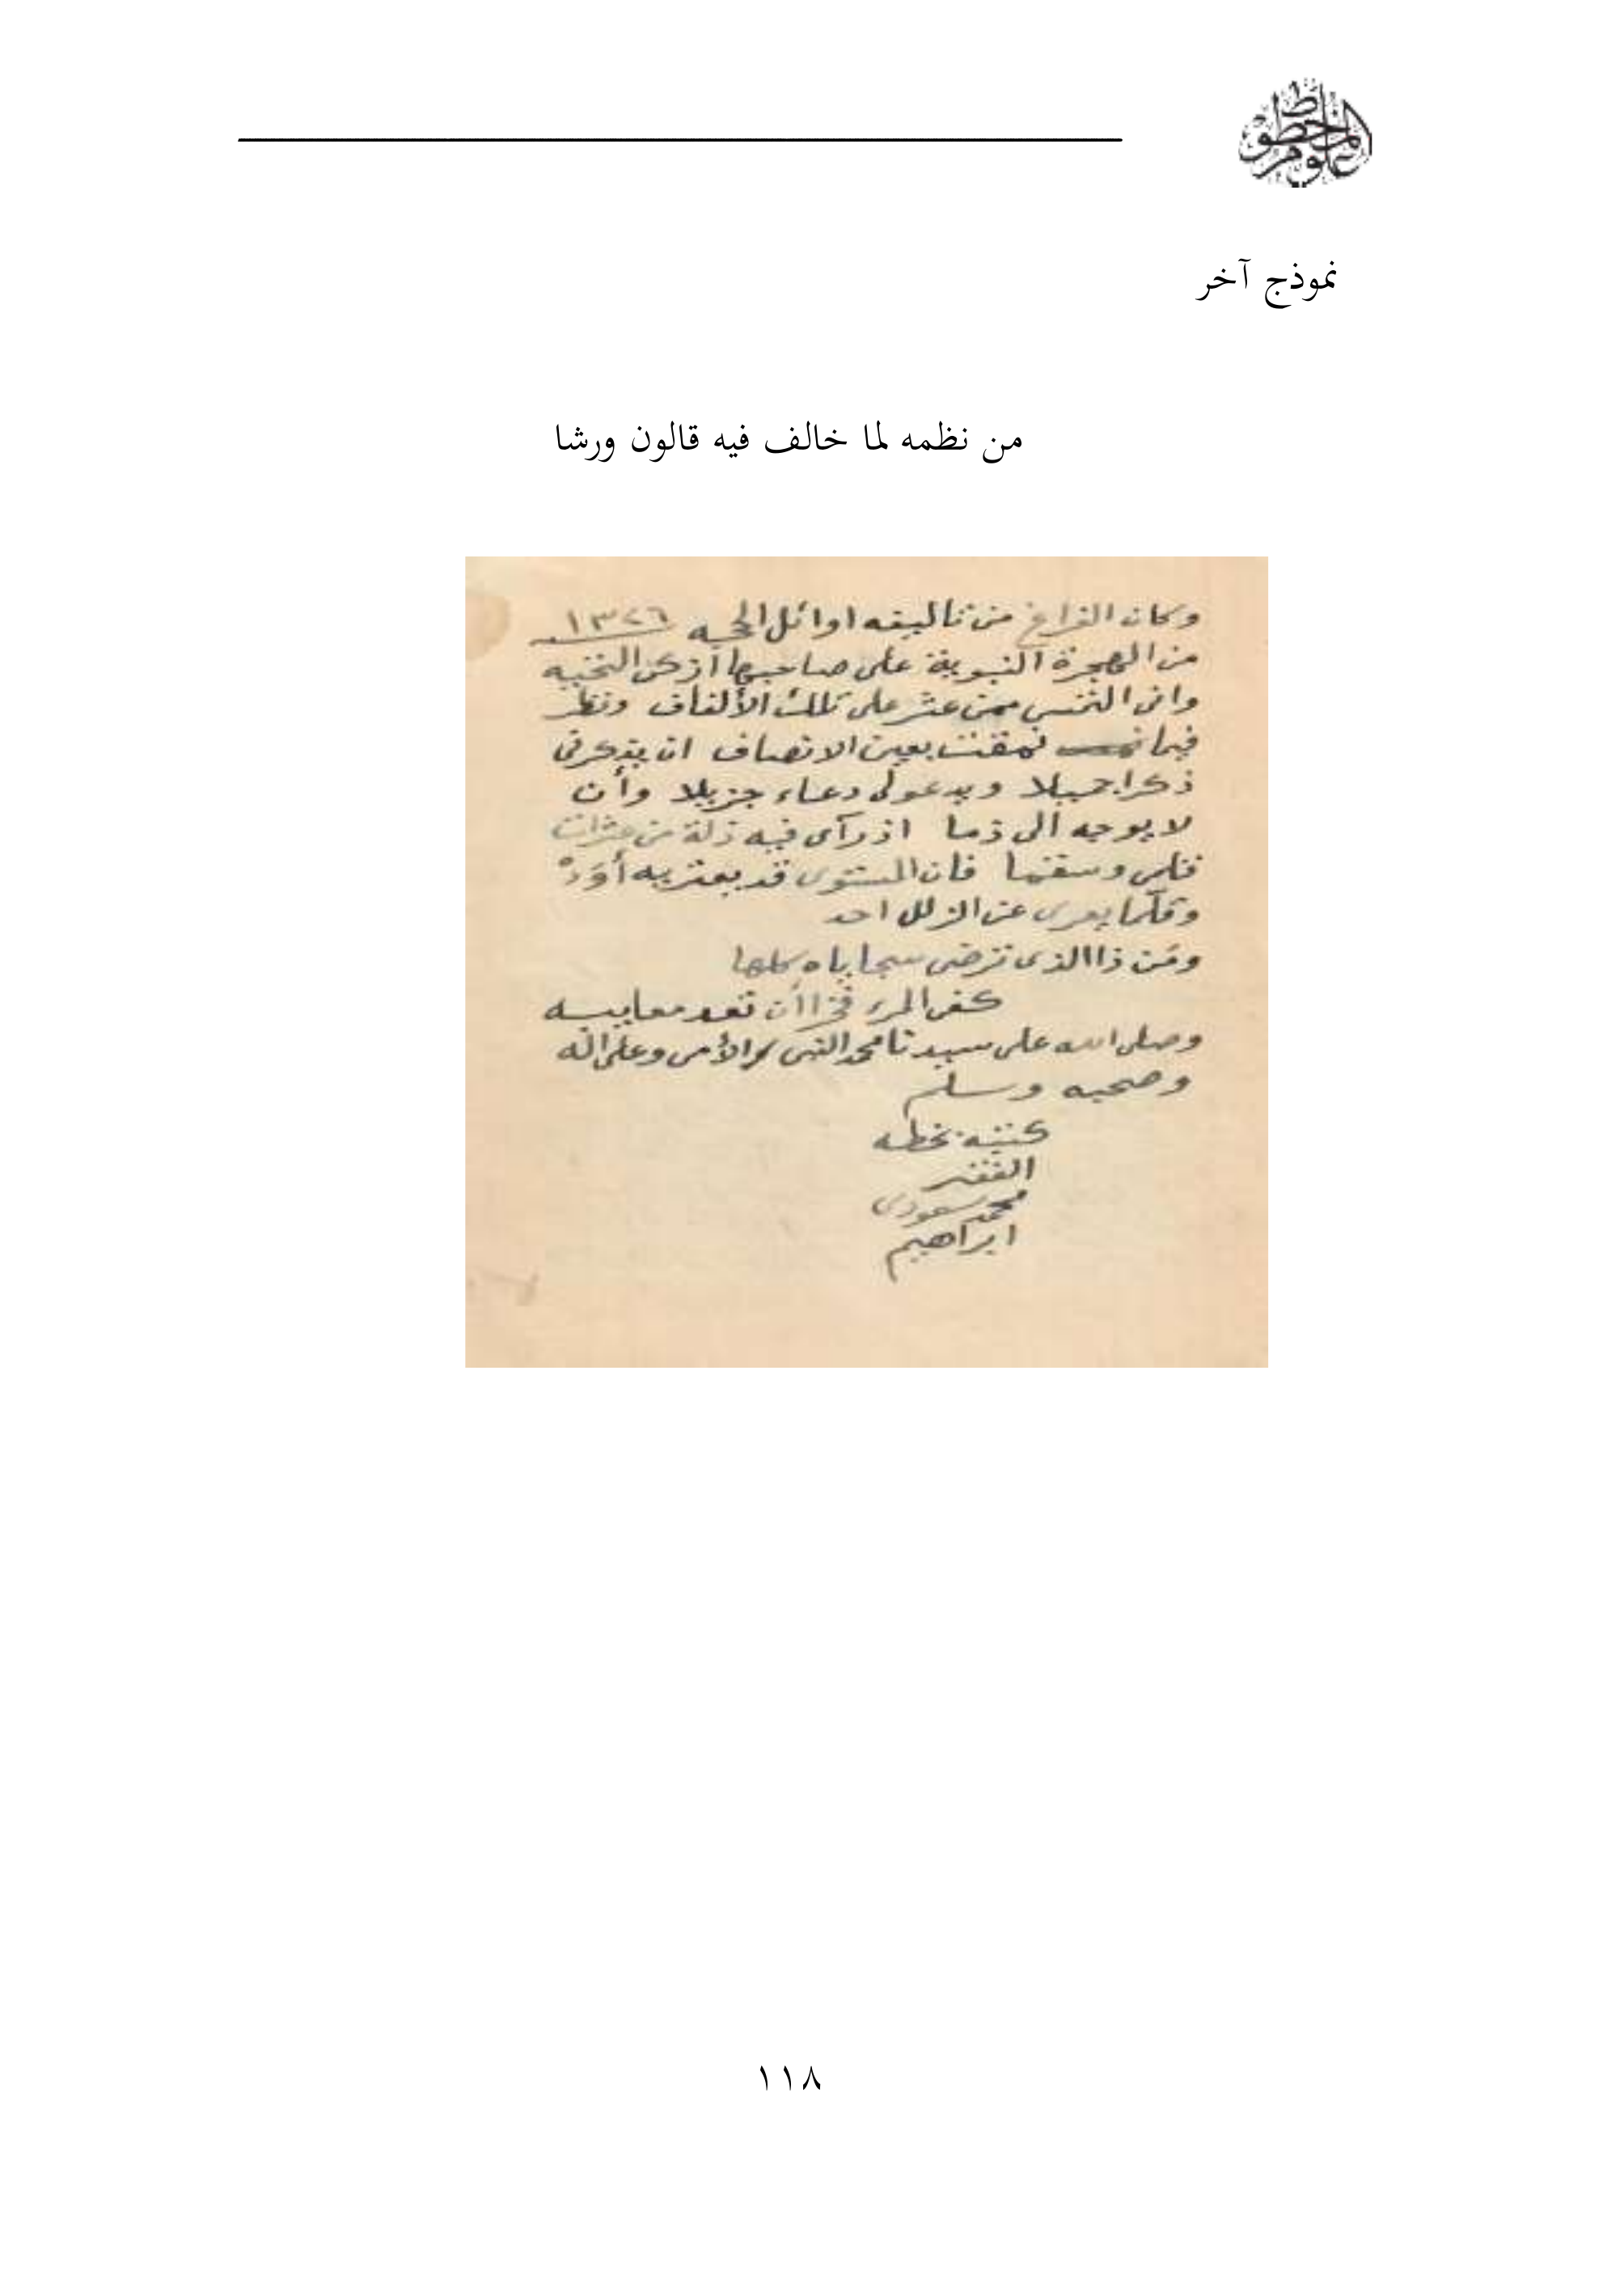 علوم المخطوط
نموذج آخر
من نظمه لما خالف فيه قالون ورشا
وكان الفراغ من تاليفه اوائل الحجه ١٣٢٦
من الهجرة النبوية على صاحبها أزكى التحيه
وانى التمس ممن عثر على تلك الألفاف ونظر
فيما نمقت بعين الانصاف ان يذكرنى
ذكرا جميلا ويدعو لى دعاء جزيلا وأن
لا يوجه الى ذما اذ رآى فيه زلة من عثرات
قلمى وسقما فان المستوى قد يعتريه أَوَدْ
وقلما يعرى عن الزلل احد
ومَن ذا الذى ترضى سجاياه كلها
كفى المرء فخرا أن تعد معايبه
وصلى الله على سيدنا محمد النبى الأمى وعلى اله
وصحبه وسلم
كتبته بخطه
الفقير
محمد سعودى
ابراهيم
١١٨